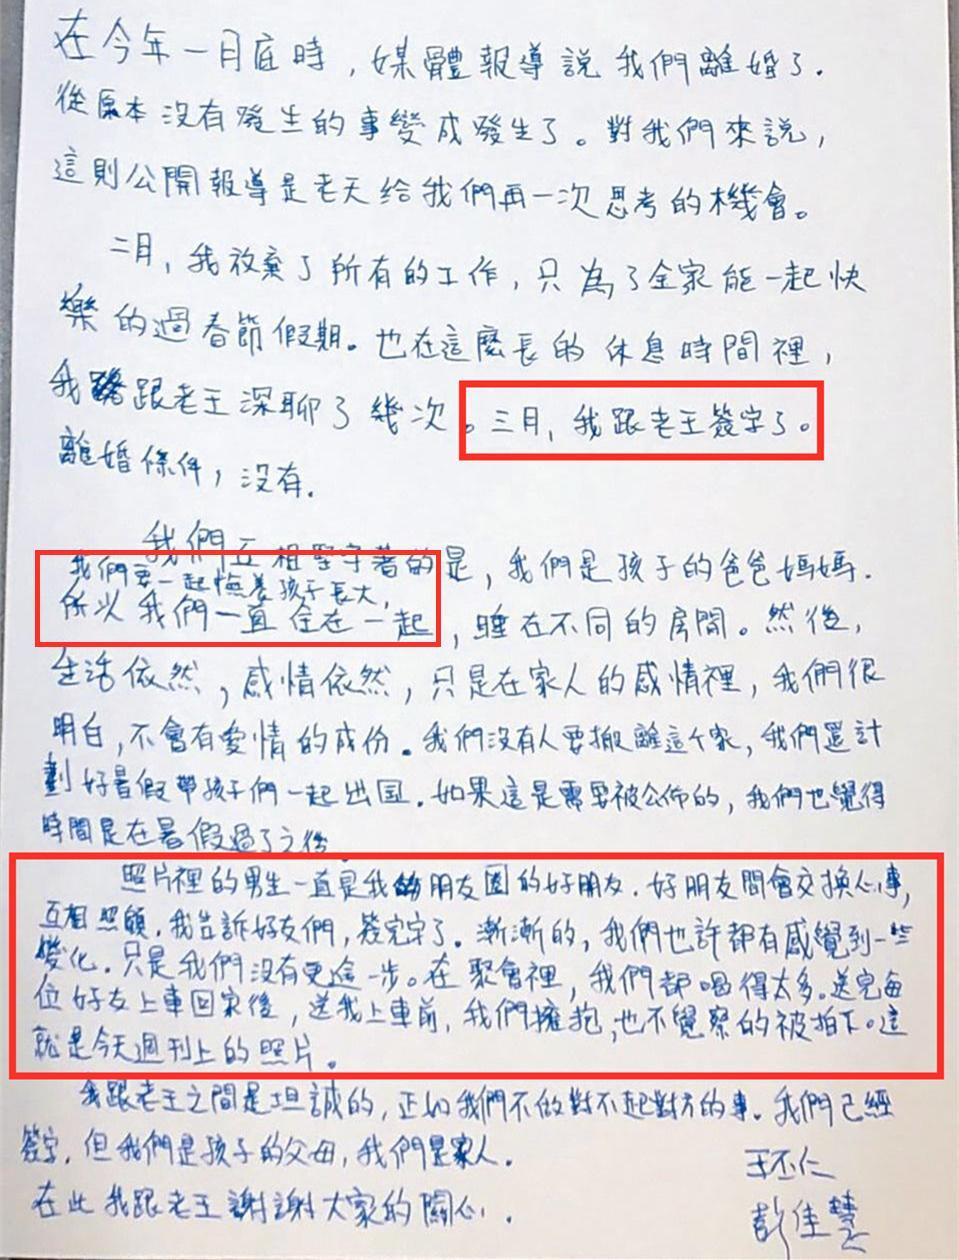 在今年一月底時，媒體報導說我們離婚了．
從原本沒有發生的事變成發生了。對我們來說，
這則公開報導是老天給我們再一次思考的機會。
二月，我放棄了所有的工作，只為了全家能一起快
樂的過春節假期。也在這麼長的休息時間裡，
我跟老王深聊了幾次。三月，我跟老王簽字了。
離婚條件，沒有．
我們互相堅守著的是，我們是孩子的爸爸媽媽．
我們要一起撫養孩子長大，
所以我們一直住在一起，睡在不同的房間。然後，
生活依然，感情依然，只是在家人的感情裡，我們很
明白，不會有愛情的成份．我們沒有人要搬離這个家，我們還計
劃好暑假帶孩子們一起出国．如果這是需要被公佈的，我們也覺得
時間是在暑假過了之後．
照片裡的男生一直是我的朋友圈的好朋友．好朋友間會交換心事，
互相照顧．我告訴好友們，簽完字了．漸漸的，我們也許都有感覺到一些
變化．只是我們沒有更進一步。在聚會裡，我們都喝得太多。送完每
位好友上車回家後，送我上車前，我們擁抱，也不覺察的被拍下。這
就是今天週刊上的照片。
我跟老王之間是坦誠的，正如我們不做對不起對方的事．我們已經
簽字，但我們是孩子的父母，我們是家人．
在此我跟老王謝謝大家的關心．
王丕仁
彭佳慧